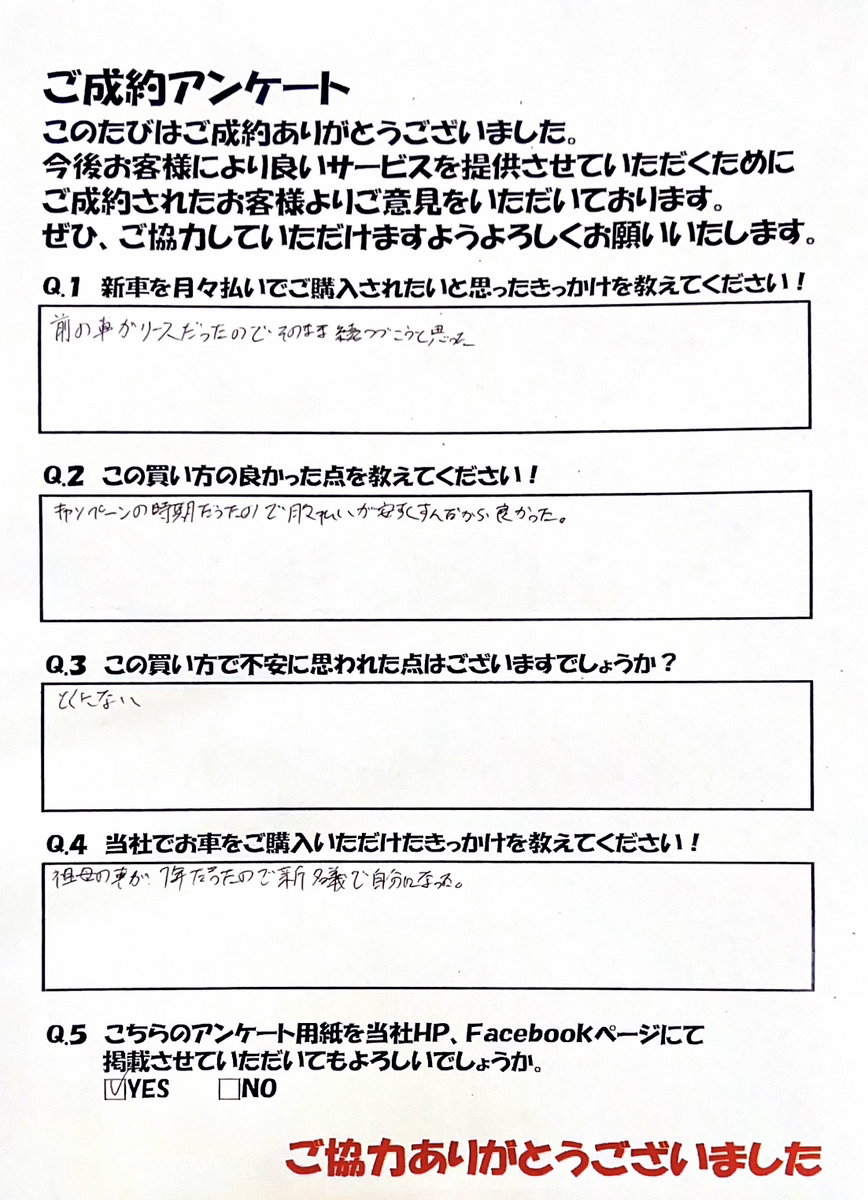 ご成約アンケート
このたびはご成約ありがとうございました。
今後お客様により良いサービスを提供させていただくために
ご成約されたお客様よりご意見をいただいております。
ぜひ、ご協力していただけますようよろしくお願いいたします。
Q.1 新車を月々払いでご購入されたいと思ったきっかけを教えてください！
前の車がリースだったのでそのまま続つづこうと思った
Q.2 この買い方の良かった点を教えてください！
キャンペーンの時期だったので月々払いが安くすんだから良かった。
Q.3 この買い方で不安に思われた点はございますでしょうか？
とくにない
Q.4 当社でお車をご購入いただけたきっかけを教えてください！
祖母の車が7年だったので新名義で自分になった。
Q.5 こちらのアンケート用紙を当社HP、Facebookページにて
掲載させていただいてもよろしいでしょうか。
☑YES □NO
ご協力ありがとうございました